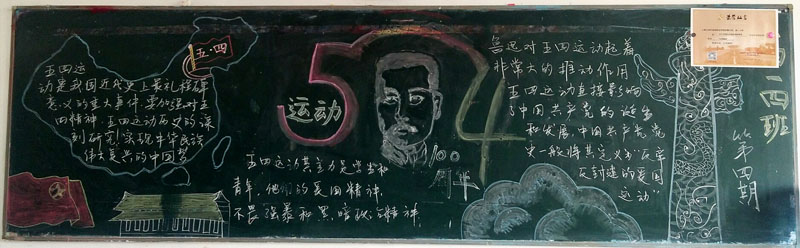 五·四
五四运
动是我国近代史上最礼程碑
意义的重大事件,要加强对五
四精神,五四运动历史的深
刻研究,实现中华民族
伟大复兴的中国梦
5 4
运动
100
周年
五四运动其主力是学生和
青年,他们的爱国精神,
不畏强暴和黑暗
精神,
鲁迅对五四运动起着
非常大的推动作用
五四运动直接影响
了中国共产党的诞生
和发展,中国共产党党
史一般将其定义为"反帝
反封建的爱国
运动"
二班
第四期